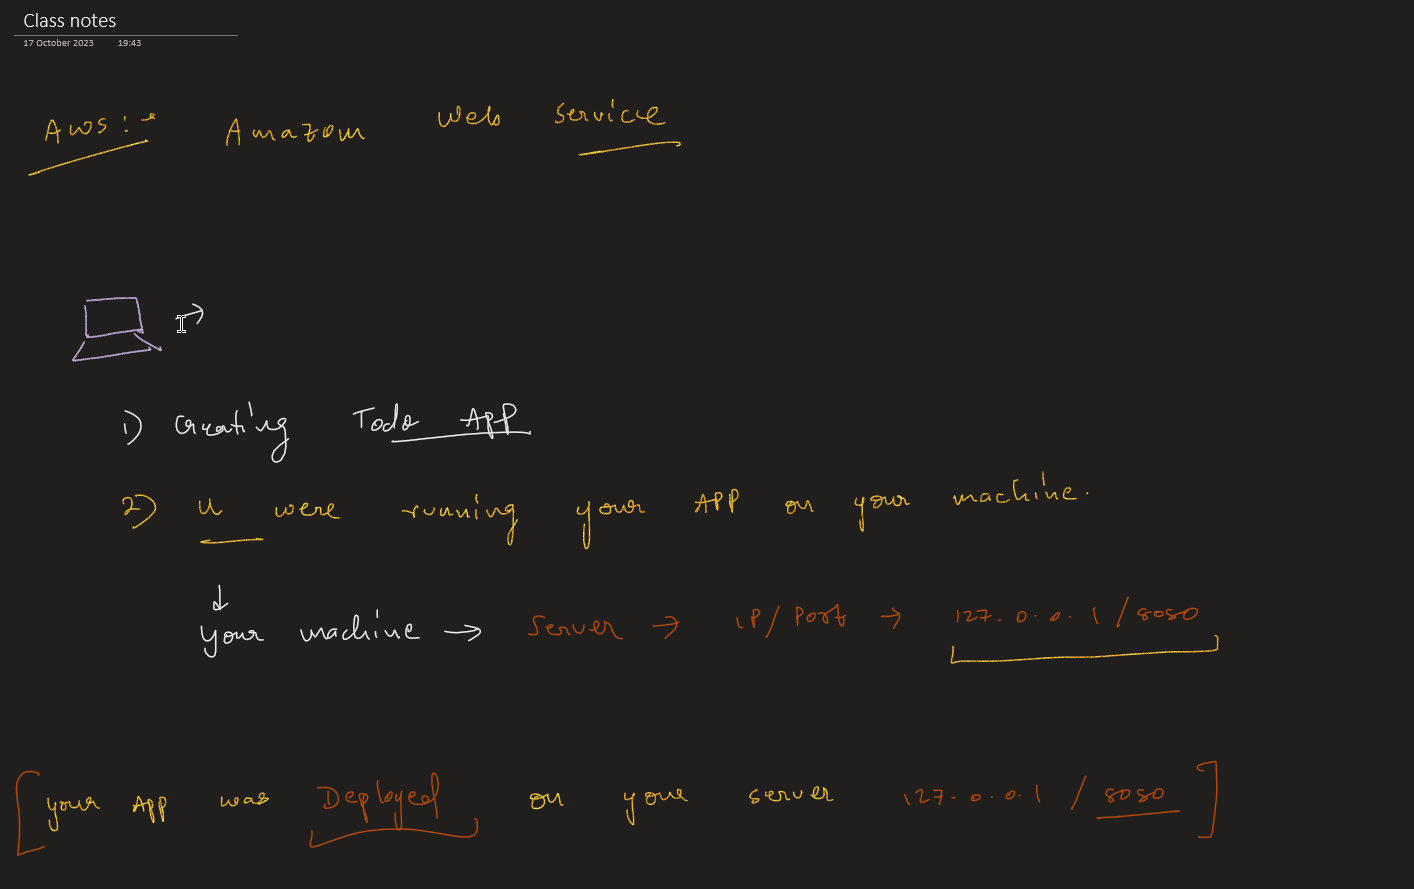 Class notes
17 October 2023 19:43
AWS:- Amazon Web Service
1) Creating Todo APP
2) U were running your APP on your machine.
your machine → Server → IP/Port → 127.0.0.1/8080
[your APP was Deployed on your server 127.0.0.1 / 8080]